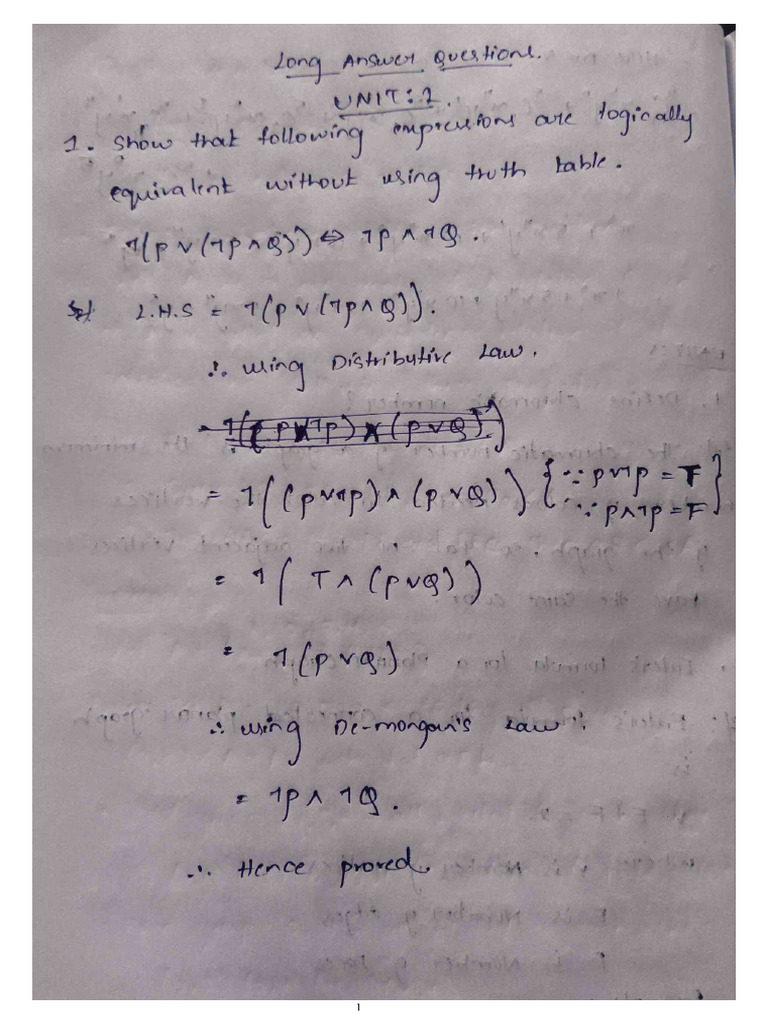 Long Answer Questions.
UNIT: 1.
1. Show that following expressions are logically
equivalent without using truth table.
¬(P ∨ (¬P ∧ Q)) ⇔ ¬P ∧ ¬Q.
Sol L.H.S = ¬(P ∨ (¬P ∧ Q)).
∴ using Distributive Law.
= ¬((P ∨ ¬P) ∧ (P ∨ Q)) {∵ P∨¬P = T
∵ P∧¬P = F}
= ¬( T ∧ (P ∨ Q))
= ¬(P ∨ Q)
∴ using De-morgan's Law.
= ¬P ∧ ¬Q.
∴ Hence proved.
1